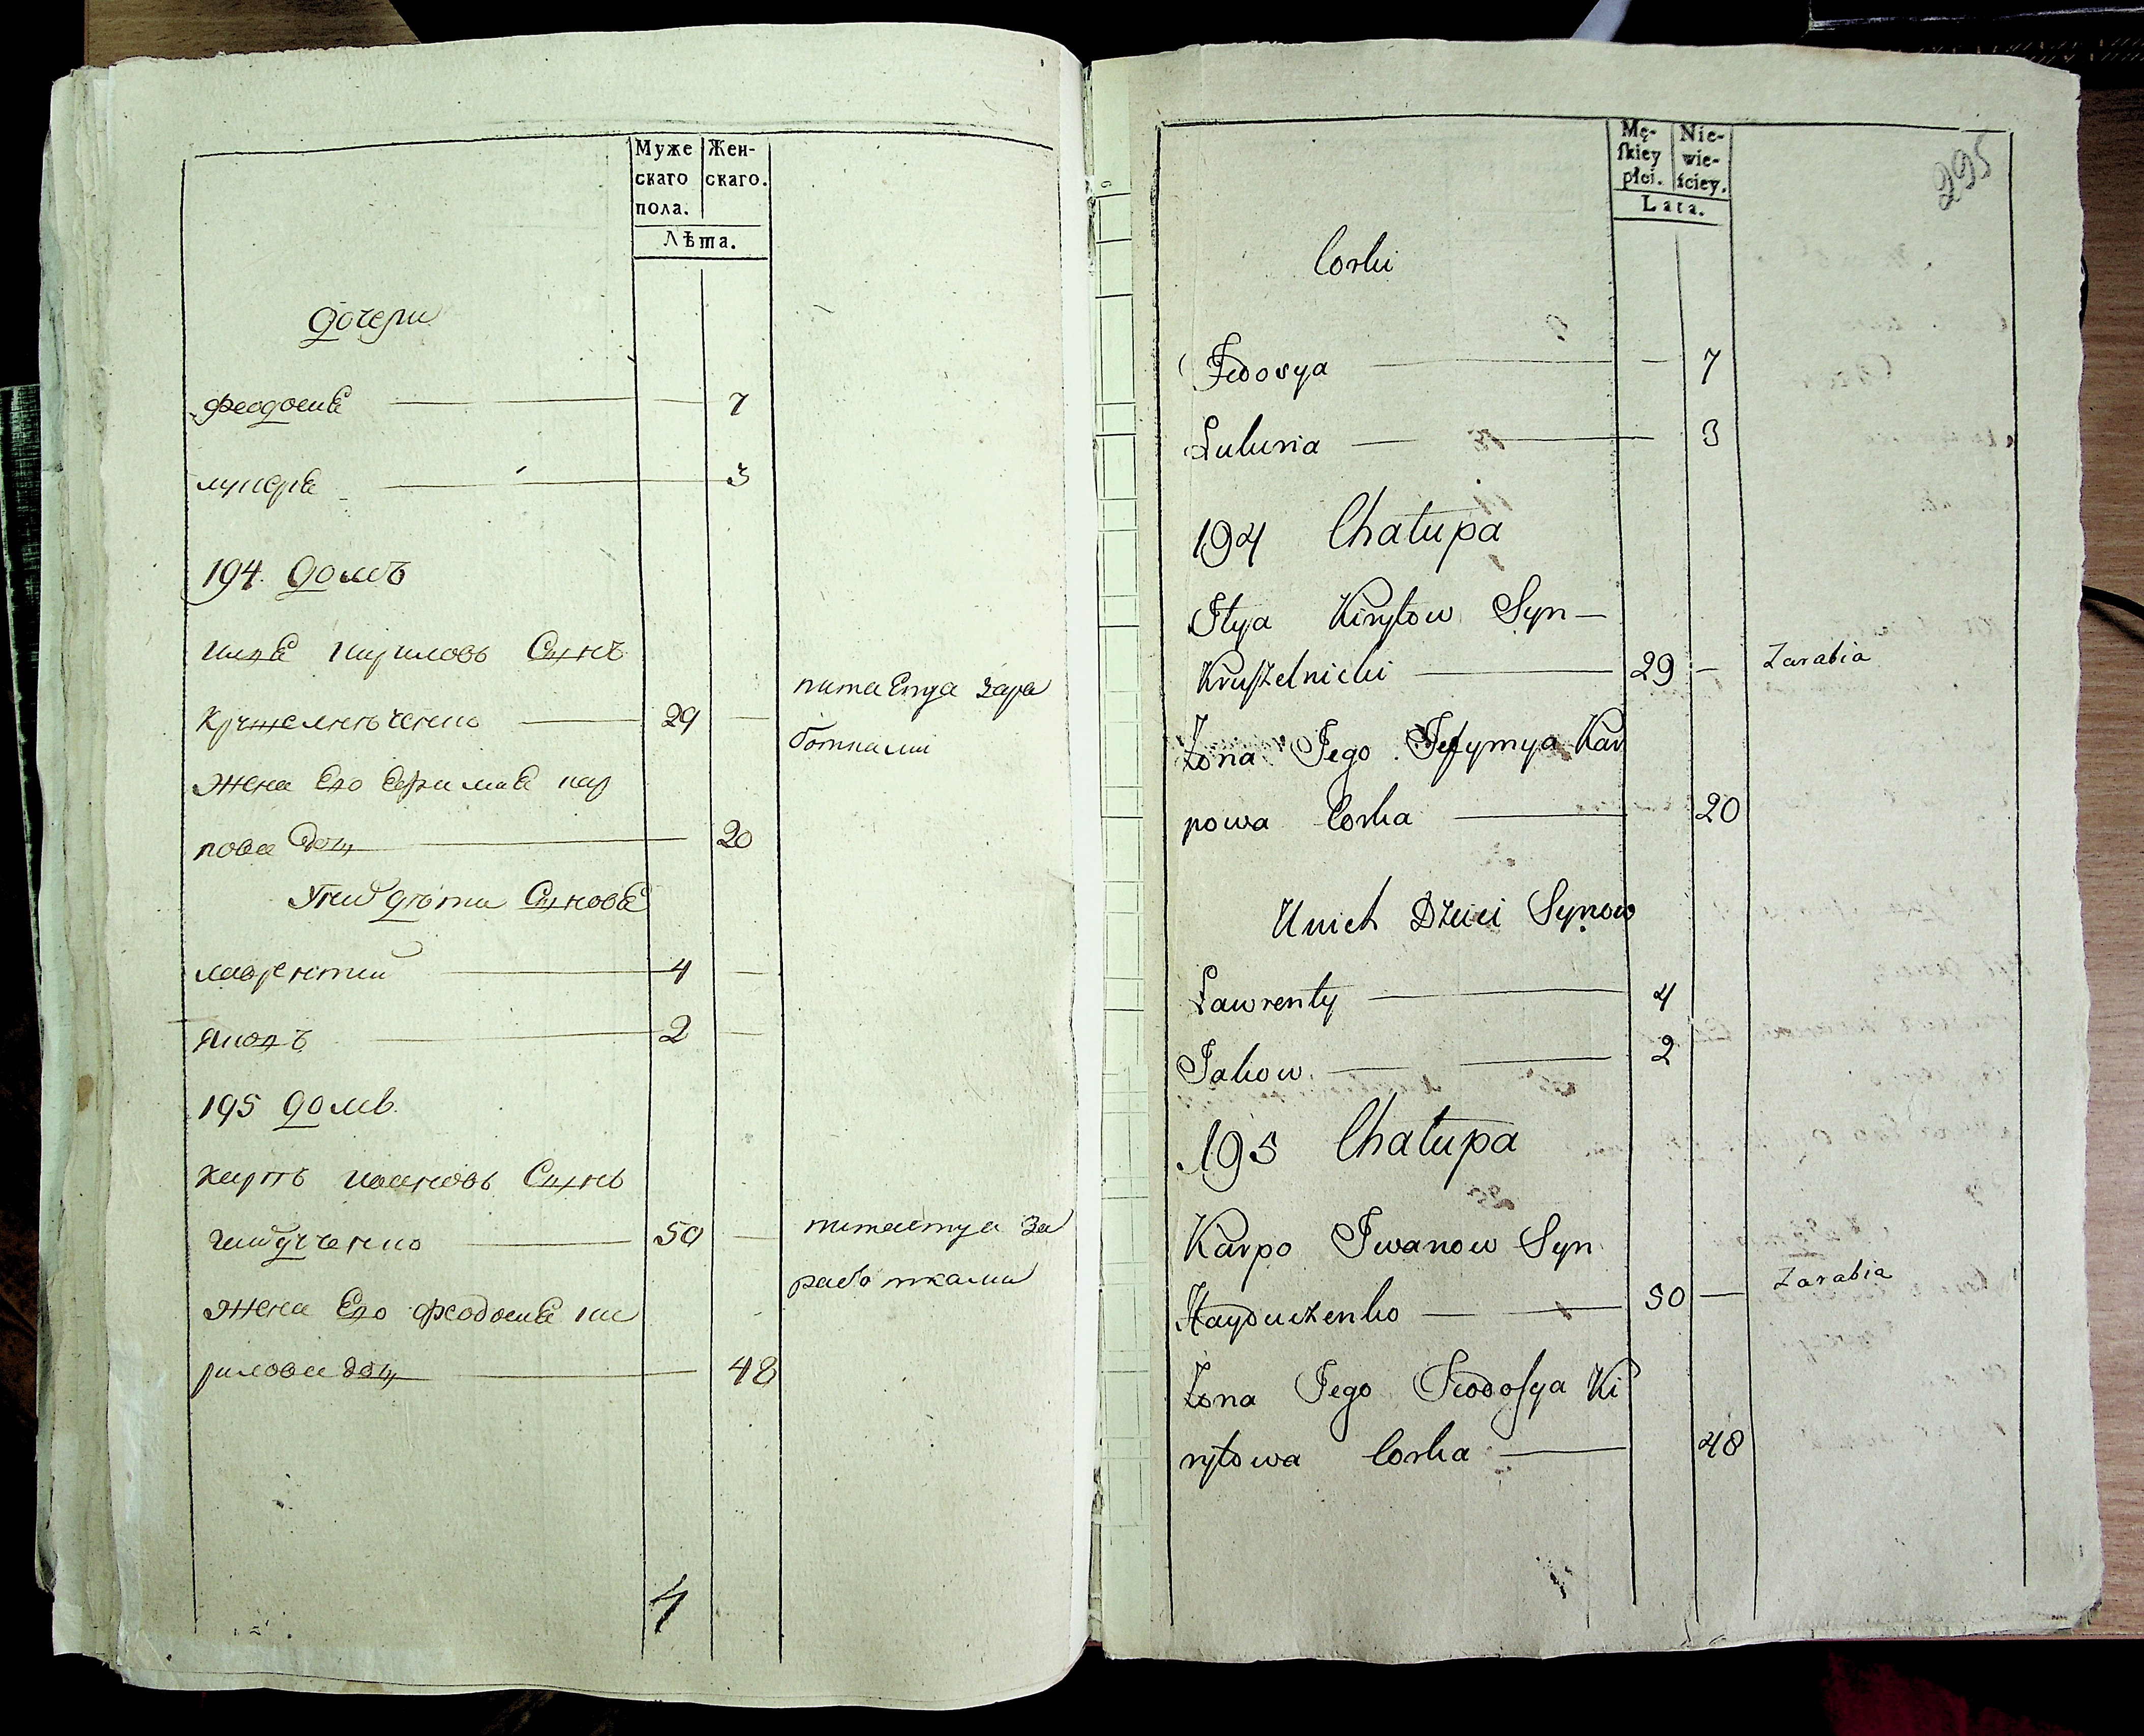 Муже
скаго
пола.
Жен-
скаго.
Лѣта.
дочери
феодосиѣ 7
лукеріа 3
194. домъ
илꙗ кириловъ Сынъ
Крушелнѣченко 29 —
питаЕтца зара
ботками
жена Его Ефимиꙗ кар
пова доч 20
Унихъ дѣти Сыновꙗ
лаврентий 4 —
Яковъ 2 —
195 домъ
карпъ ивановъ Сынъ
гайдученко 50 —
питаетца за
работками
жена Его феодосиꙗ ки
рилова доч 48
4
Mę-
ſkiey
płci.
Nie-
wie-
ściey.
Lata.
295
Corki
Fedosya — 7
Lukiria 3
194 Chałupa
Ilya Kiryłow Syn —
Kruſzelnicki 29 — Zarabia
Żona Jego Jefymya Kar
powa Corka 20
Unich Dzieci Synow
Ławrenty 4
Jakow 2
195 Chałupa
Karpo Iwanow Syn
Hayduczenko 50 — Zarabia
Żona Jego Feodoſya Ki
ryłowa Corka 48